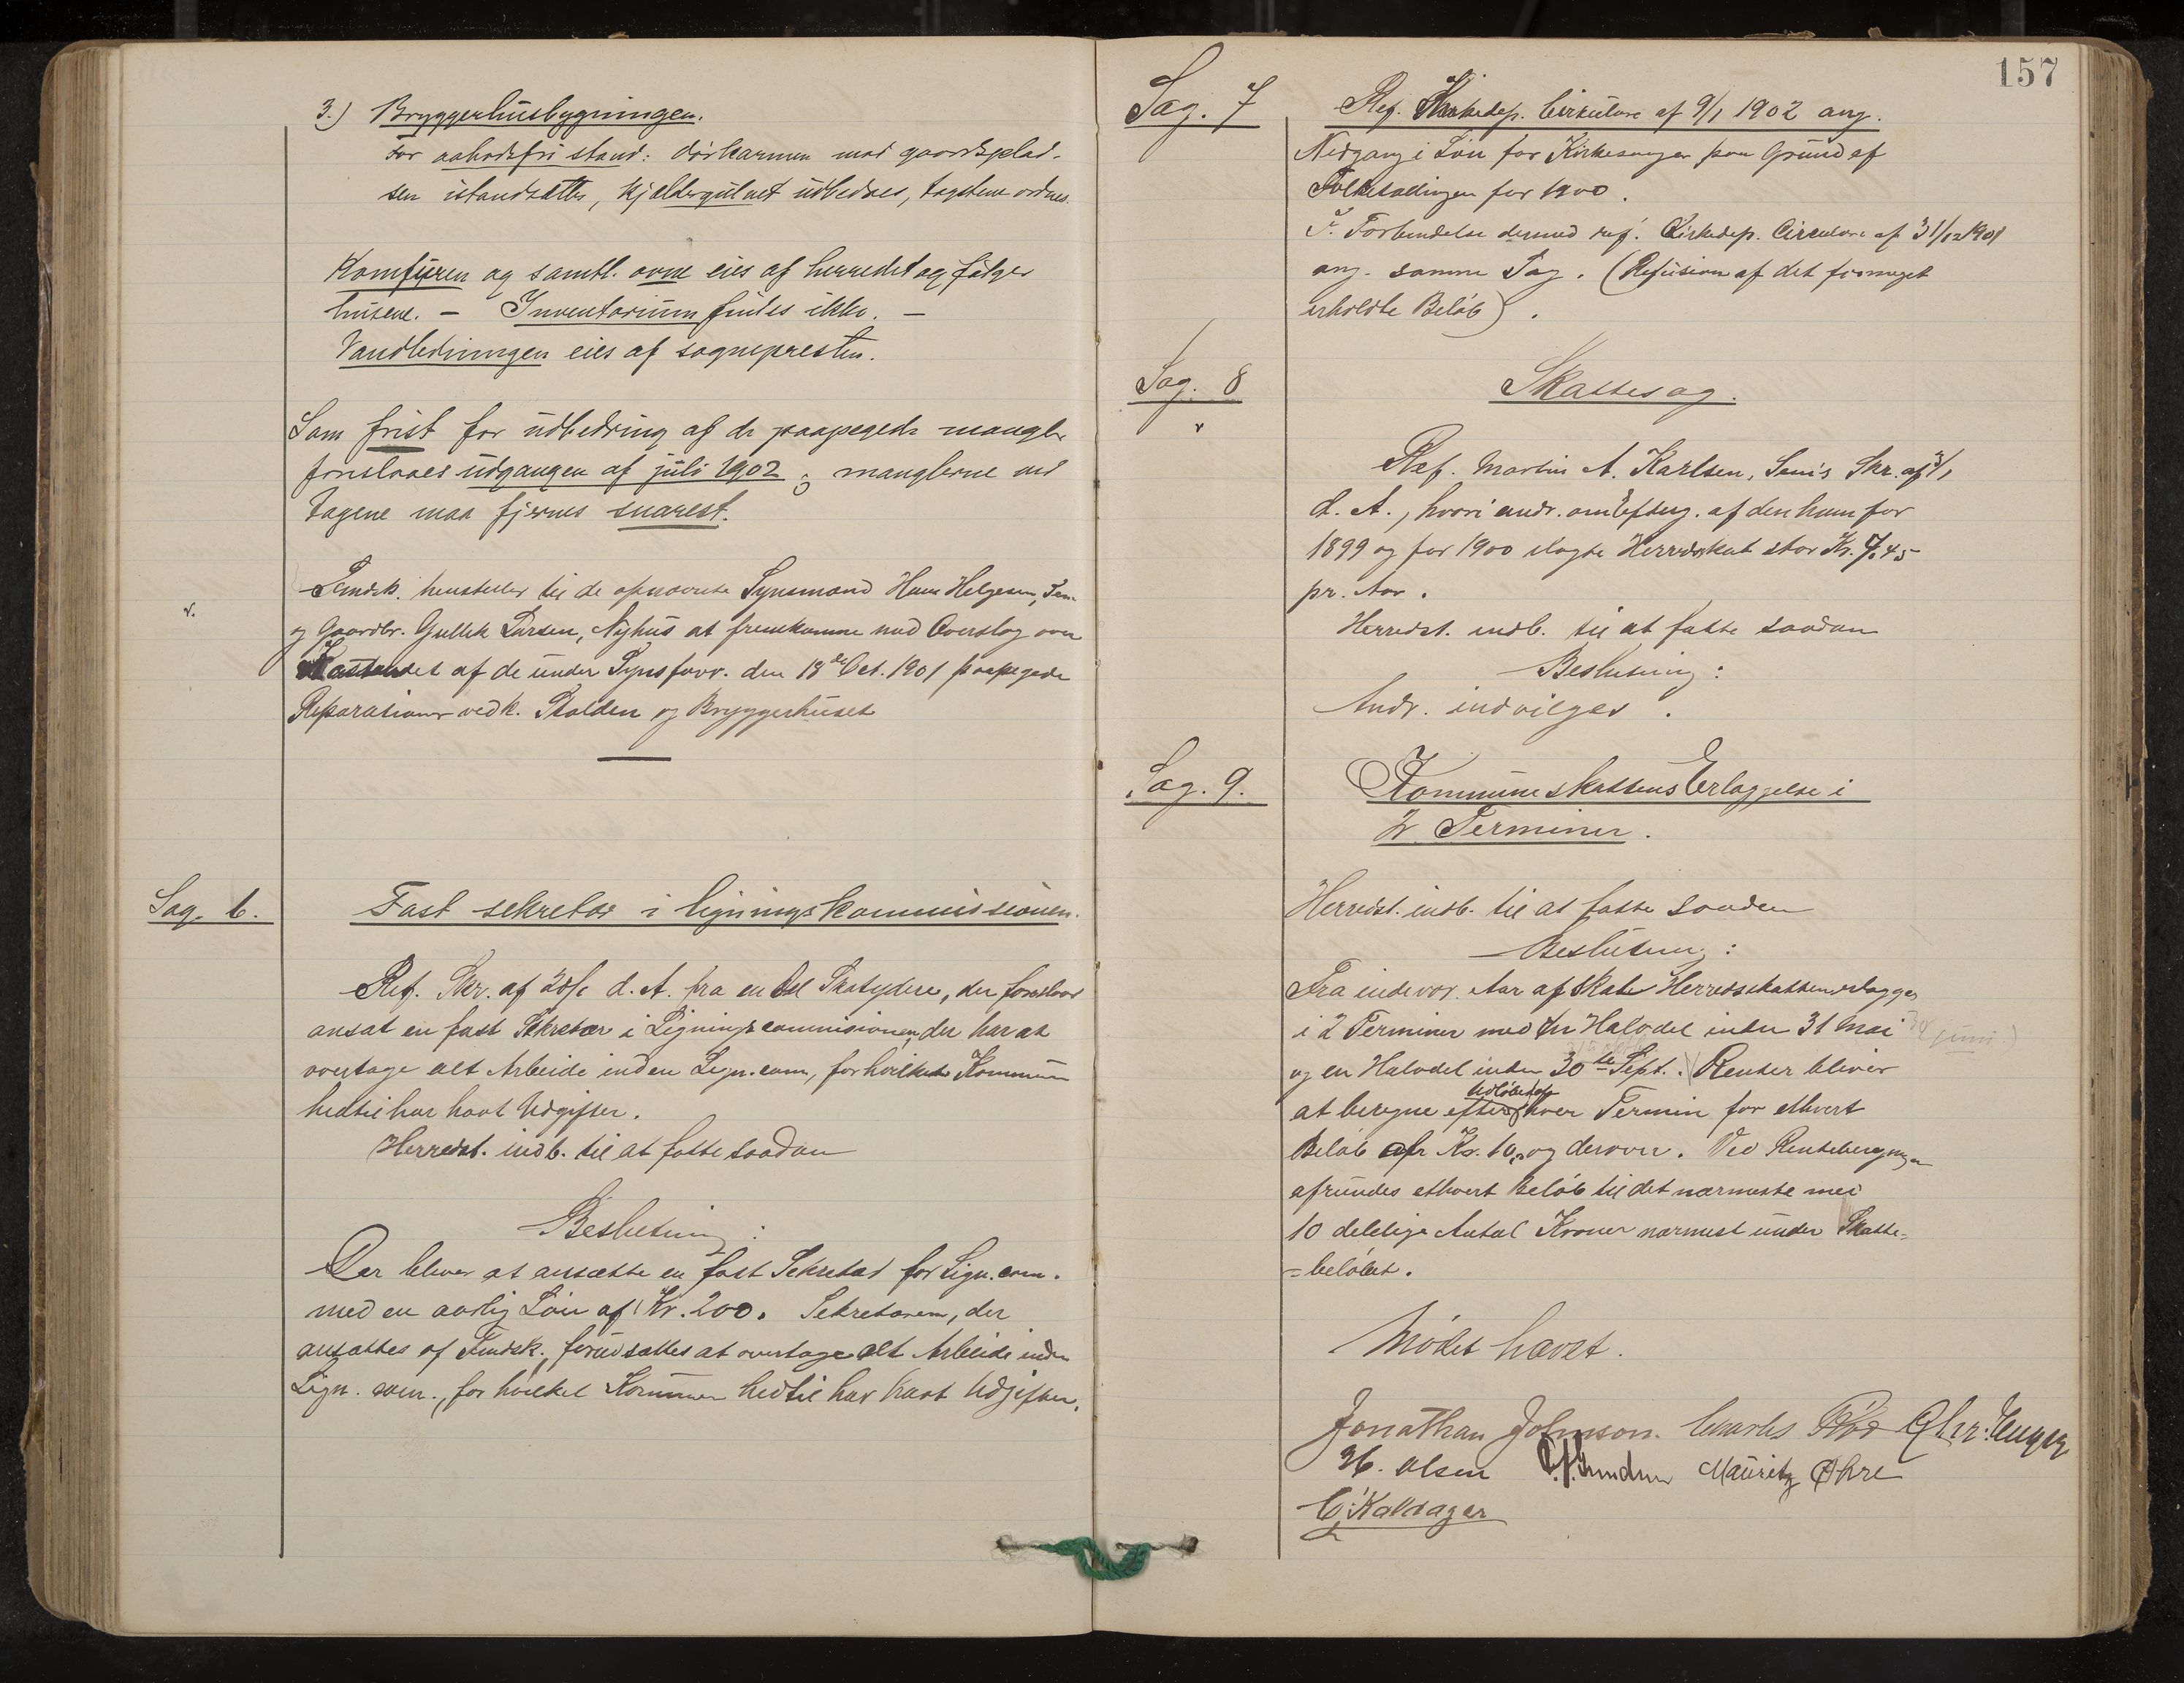 3.) Bryggerhusbygningen.
For aabodsfri stand: dørkarmen mod gaardsplad-
sen istandsættes, kjældergulvet udbedres, tagstene ordnes.
Komfuren og samtl. ovne eies af herredet og følger
husene. — Inventarium findes ikke. —
Vandledningen eies af sognepresten.
Som frist for udbedring af de paapegede mangler
foreslaaes udgangen af juli 1902; manglerne ved
tagene maa fjernes snarest.
v.
Fmdsk. henstiller til de opnævnte Synsmænd Hans Helgesen,
og Gaardbr. Gullik Larsen, Nyhus at fremkomme med Overslag over
Kostendet af de under Synsforr. den 18de Oct. 1901 paapegede
Reparationer vedk. Stalden og Bryggerhuset
Sag. 6.
Fast sekretær i ligningskommissionen.
Ref. Skr. af d. A. fra en Del Skatydere, der foreslaar
ansat en fast Sekretær i Ligningscommisionen, der har at
overtage alt Arbeide inden Lign. com, for hvilket Kommunen
hidtil har havt Udgifter.
Herredst. indb. til at fatte saadan
Beslutning:
Der bliver at ansætte en fast Sekretær for Lign. com.
med en aarlig Løn af Kr. 200. Sekretæren, der
ansættes af Fmdsk., forudsættes at overtage alt Arbeide inden
Lign. com., for hvilket Kommunen hidtil har havt Udgifter.
157
Sag. 7
Ref. Kirkedep. Cirkulære af 9/1 1902 ang.
Nedgang i Løn for Kirkesanger paa Grund af
Folketællingen for 1900.
I Forbindelse dermed ref. Kirkedep. Circulære af 31/12 1901
ang. samme Sag. (Refusion af det formeget
erholdte Beløb).
Sag. 8
v
Skattesag.
Ref. Martin A. Karlsen, Skr. af
d. A., hvori andr. om Efterg. af den ham for
1899 og for 1900 ilagte Herredsskat stor Kr. 7,45
pr. Aar.
Herredst. indb. til at fatte saadan
Beslutning:
Andr. indvilges.
Sag. 9.
Kommuneskattens Erlæggelse i
2 Terminer.
Herredst. indb. til at fatte saadan
Beslutning:
Fra indev. Aar af skal Herredsskatten erlægges
i 2 Terminer med en Halvdel inden 31 Mai juni.)
og en Halvdel inden 30te Sept. Renter bliver
at beregne efter Udløbet af hver Termin for ethvert
Beløb af Kr. 10,- og derover. Ved Renteberegningen
afrundes ethvert Beløb til det nærmeste med
10 delelige Antal Kroner nærmest under Skatte-
=beløbet.
Mødet hævet.
Jonathan Johnson. Charles Chr.
H. Olsen Mauritz Øhre
C. Kaldager